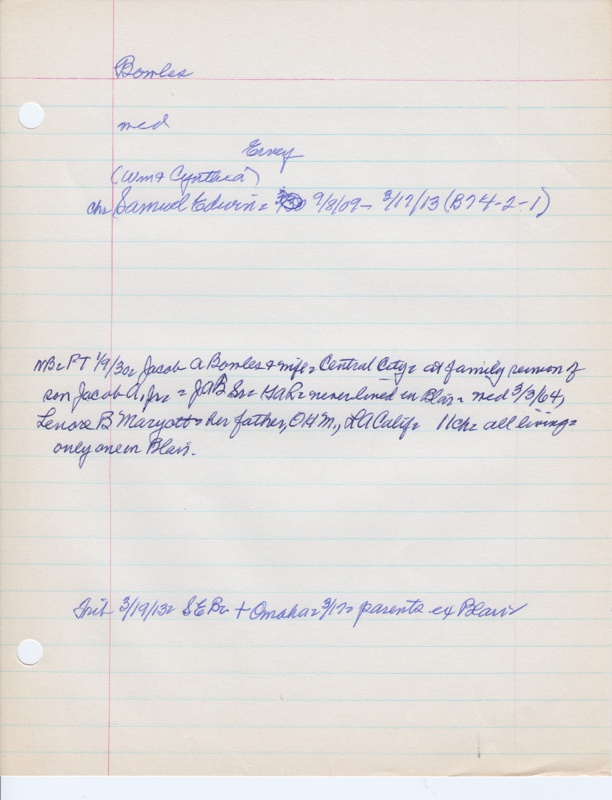 Bowles
med
Ervey
(Wm + Cynthia)
ch= Samuel Edwin= 9/8/09 - 3/17/13 (B74-2-1)
NB= PT 1/9/30= Jacob A Bowles + wife= Central City= at family reunion of
son Jacob A, Jr. = JAB Sr= GAR= never lived in Blair= med 3/3/64,
Lenora B Maryott= her father, OHM., LA Calif= 11ch= all living=
only one in Blair.
Trib 3/19/13= S E B= + Omaha= 3/17= parents ex Blair